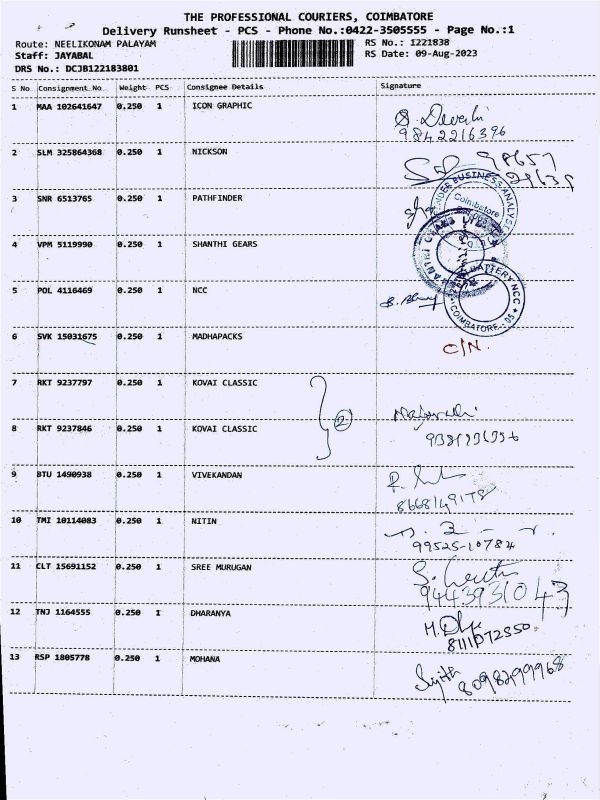 THE PROFESSIONAL COURIERS, COIMBATORE
Delivery Runsheet - PCS - Phone No.:0422-3505555 - Page No.:1
Route: NEELIKONAM PALAYAM RS No.: I221838
Staff: JAYABAL RS Date: 09-Aug-2023
DRS No.: DCJB122183801
S No Consignment No Weight PCS Consignee Details Signature
1 MAA 102641647 0.250 1 ICON GRAPHIC
9842216396
2 SLM 325864368 0.250 1 NICKSON
98657
3 SNR 6513765 0.250 1 PATHFINDER
BUSINESS ANALYST
Coimbatore
4 VPM 5119990 0.250 1 SHANTHI GEARS
5 POL 4116469 0.250 1 NCC
BATTERY NCC
COIMBATORE - 05
6 SVK 15031675 0.250 1 MADHAPACKS
C/N.
7 RKT 9237797 0.250 1 KOVAI CLASSIC
2
8 RKT 9237846 0.250 1 KOVAI CLASSIC
9 BTU 1490938 0.250 1 VIVEKANDAN
8668149178
10 TMI 10114083 0.250 1 NITIN
99525-10784
11 CLT 15691152 0.250 1 SREE MURUGAN
9443931043
12 TNJ 1164555 0.250 1 DHARANYA
8111072550
13 RSP 1805778 0.250 1 MOHANA
Sujith
8098299968